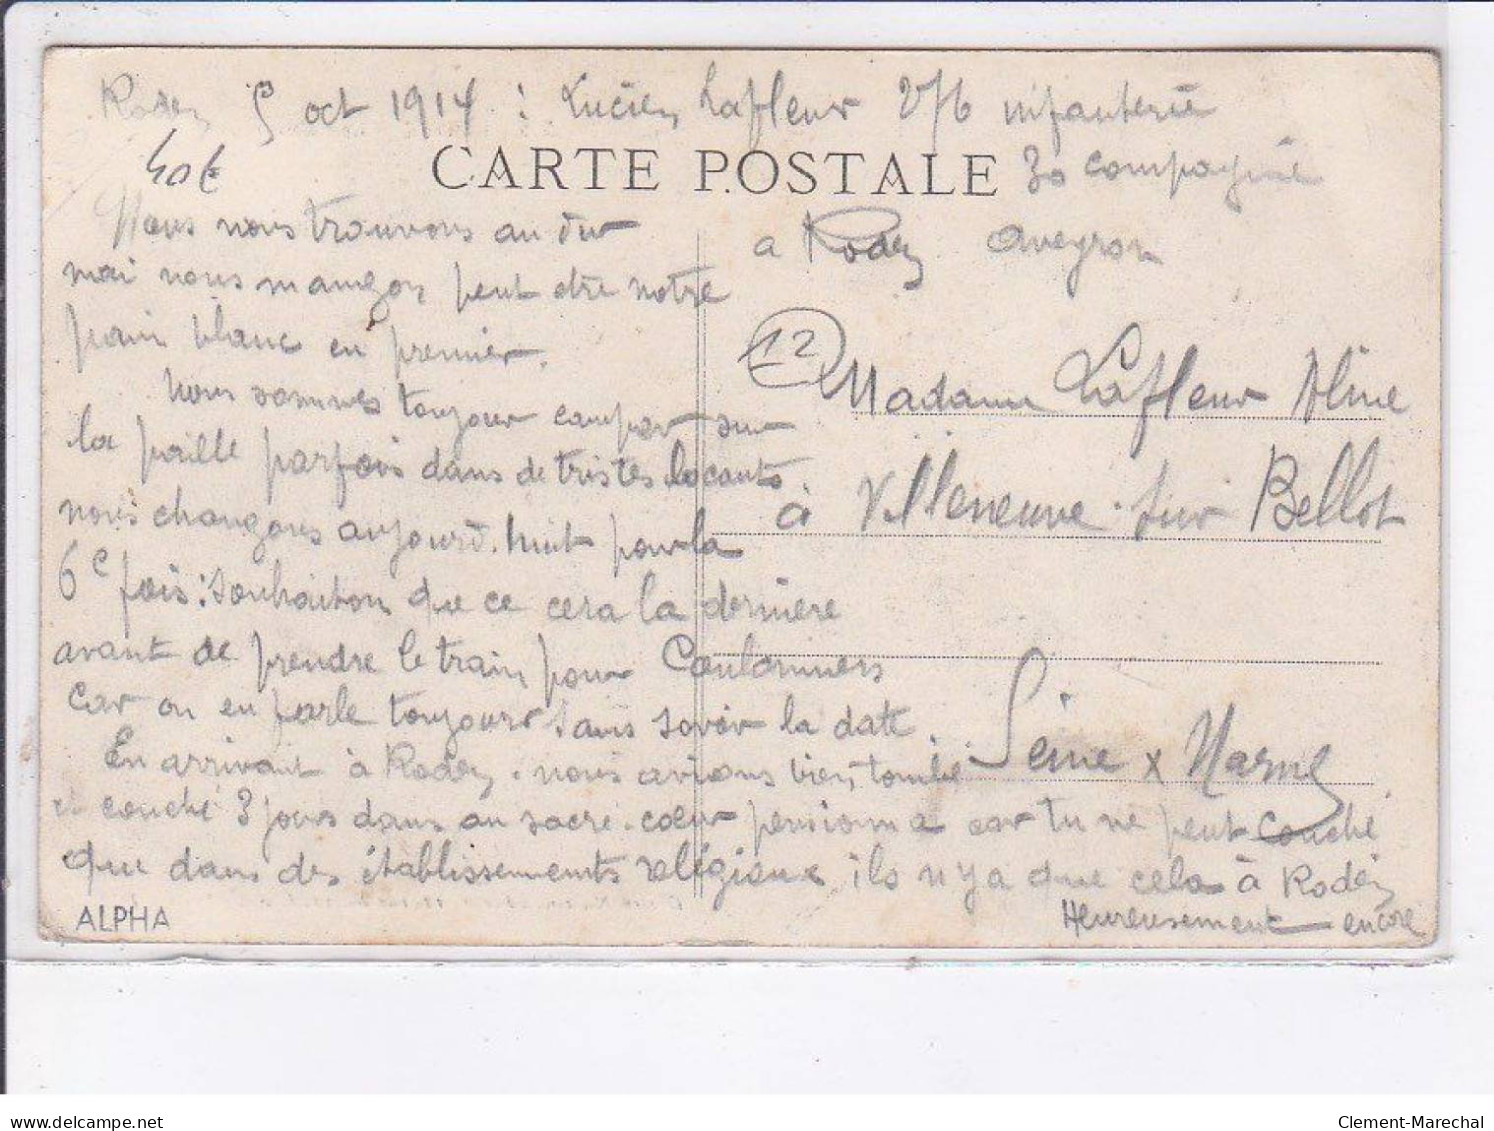 Rodez 5 oct 1914 : Lucien Lafleur 276 infanterie
40€
CARTE POSTALE
30 compagnie
a Rodez Aveyron
Nous nous trouvons au dur
mai nous mangon peut etre notre
pain blanc en premier.
12
Nous sommes toujour camper sur
la paille parfois dans de tristes locauts.
nous changons aujourd.huit pour la
6e fois: souhaiton que ce cera la dernière
avant de prendre le train pour Coulommiers
Car on en parle toujours sans savoir la date.
En arrivant à Rodez. nous avions bien tombé
et couché 3 jours dans au sacré-coeur pensionna car tu ne peut couché
que dans des établissements religieux, ils n'y a que cela à Rodez
Heureusement encore
Madame Lafleur Aline
à Villeneuve-sur Bellot
Seine x Marne
ALPHA
www.delcampe.net
Clement-Marechal